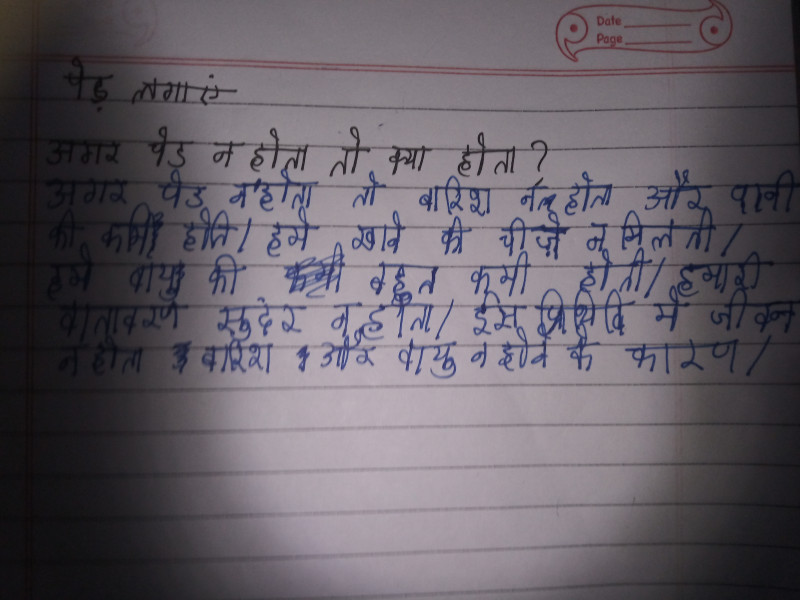 Date
Page
पेड़ लगाएं
अगर पेड न होता तो क्या होता?
अगर पेड न होता तो बारिश न होता और पानी
की कमी होति। हमे खाने की चीज़े न मिलती।
हमे वायु की बहुत कमी होती। हमारी
वातावरण सुदंर न होता। इस में जीवन
न होता बारिश और वायु न होने के कारण।